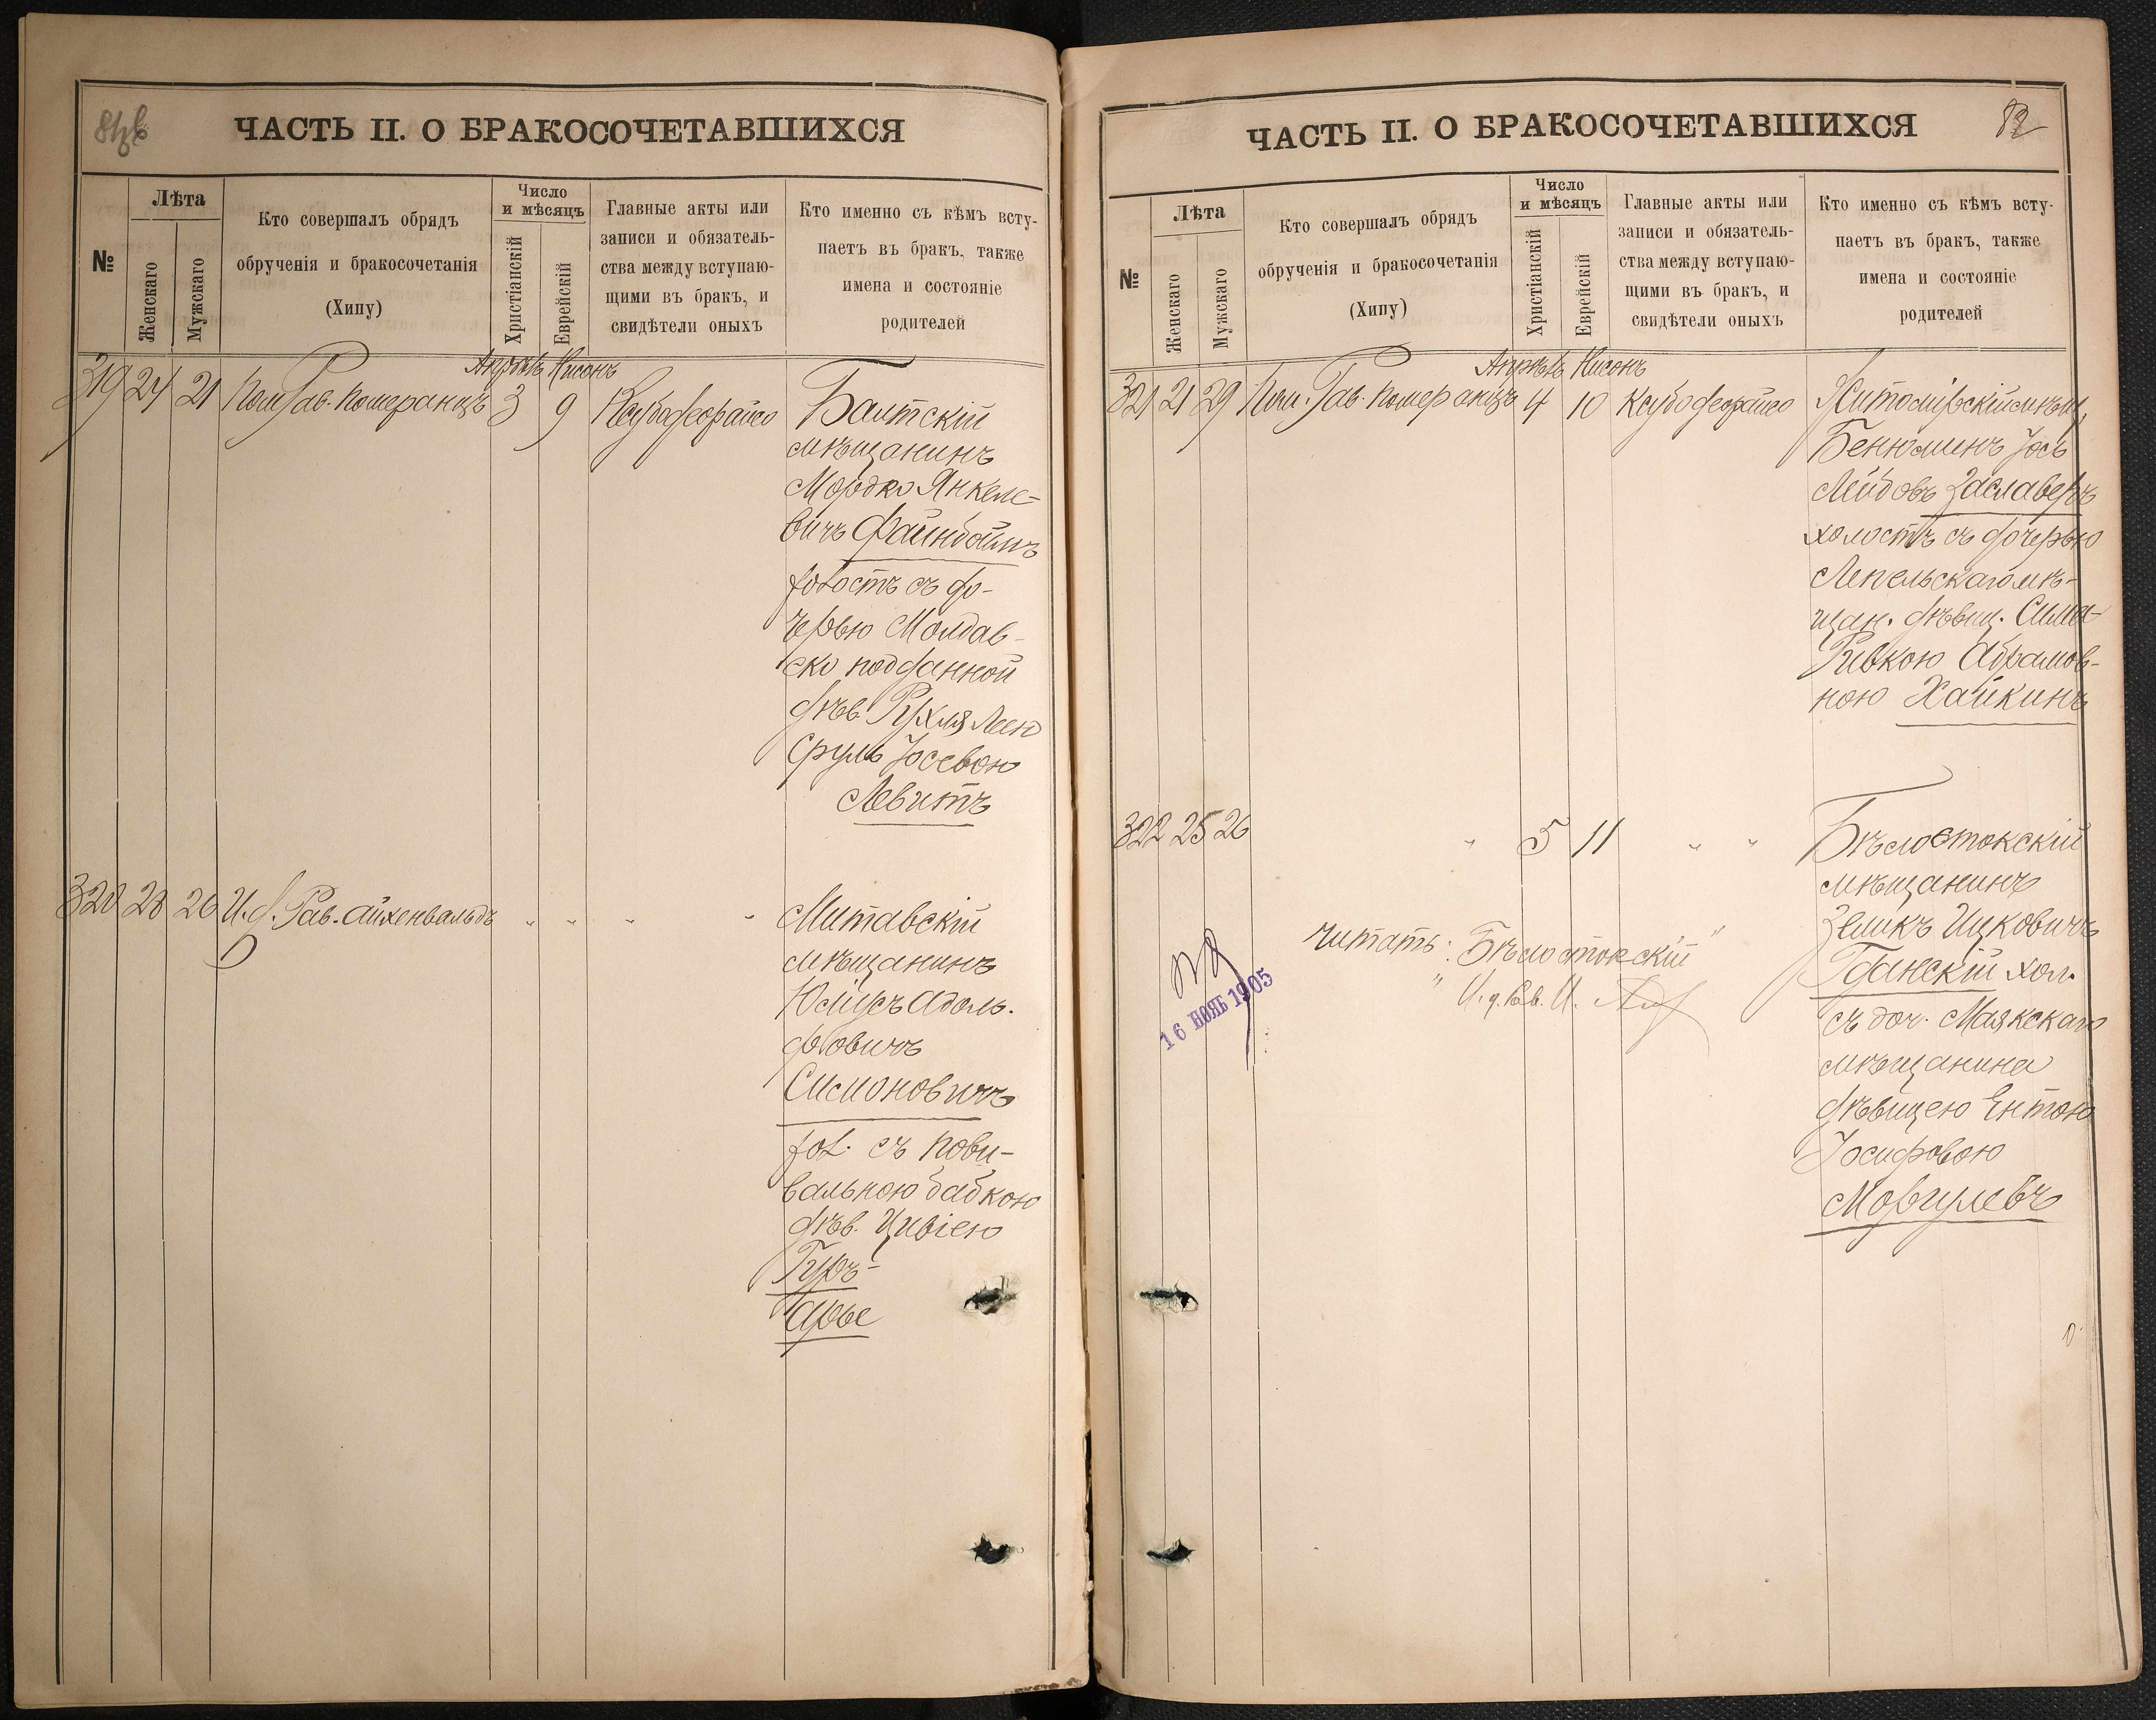 ЧАСТЬ II. О БРАКОСОЧЕТАВШИХСЯ
№
Лѣта
Женскаго
Мужскаго
Кто совершалъ обрядъ
обрученія и бракосочетанія
(Хипу)
Число
и мѣсяцъ
Христіанскій
Еврейскій
Главные акты или
записи и обязатель-
ства между вступаю-
щими въ бракъ, и
свидѣтели оныхъ
Кто именно съ кѣмъ всту-
паетъ въ бракъ, также
имена и состояніе
родителей
Апрѣль Нисонъ
319 24 21 Пом. Рав. Померанцъ 3 9
Балтскій
мѣщанинъ
Мордко Янкеле-
вичъ Файнбоймъ
холостъ съ до-
черью Молдав-
ско подданной
дѣв. Рухля Леею
Сруль Іосевою
Левитъ
320 20 26 И. д. Рав. Айхенвальдъ " " " "
Митавскій
мѣщанинъ
Юліусъ Адоль.
фовичъ
Симоновичъ
хол. съ пови-
вальною бабкою
дѣв. Цивіею
Гуръ-
Арье
ЧАСТЬ II. О БРАКОСОЧЕТАВШИХСЯ
82
№
Лѣта
Женскаго
Мужскаго
Кто совершалъ обрядъ
обрученія и бракосочетанія
(Хипу)
Число
и мѣсяцъ
Христіанскій
Еврейскій
Главные акты или
записи и обязатель-
ства между вступаю-
щими въ бракъ, и
свидѣтели оныхъ
Кто именно съ кѣмъ всту-
паетъ въ бракъ, также
имена и состояніе
родителей
Апрѣль Нисонъ
321 21 29 Пом. Рав. Померанцъ 4 10
Житомірскій мѣщ.
Бенюминъ Іось
Лейбовъ Заславеръ
холостъ съ дочерью
Лепельскаго мѣ-
щан. дѣвиц. Сима
Ривкою Абрамов-
ною Хайкинъ
322 25 26 " 5 11 " "
Бѣлостокскій
мѣщанинъ
Зеликъ Ицковичъ
Гданскій хол.
съ доч. Маякскаго
мѣщанина
дѣвицею Ентою
Іосифовою
Могулевъ
читать: Бѣлостокскій"
" И. д. Рав. И.
16 НОЯБ 1905